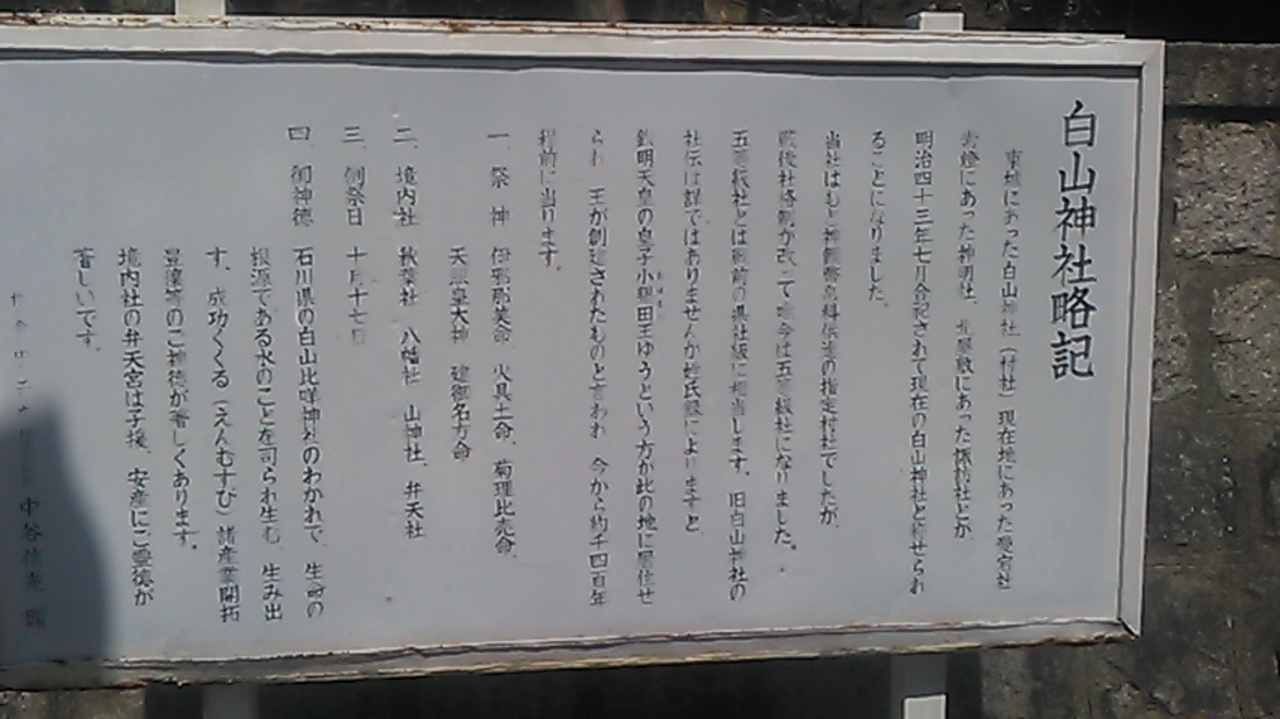 白山神社略記
東城にあった白山神社(村社)現在地にあった愛宕社
常燈にあった神明社、北屋敷にあった諏訪社とが
明治四十三年七月合祀されて現在の白山神社と称せられ
ることになりました。
当社はもと神饌幣帛料供進の指定村社でしたが、
戦後社格制が改って唯今は五等級社になりました。
五等級社とは戦前の県社級に相当します。旧白山神社の
社伝は詳ではありませんが姓氏録によりますと、
欽明天皇の皇子小墾田王ゆうという方が此の地に居住せ
られ 王が創建されたものと言われ 今から約千四百年
程前に当ります。
一、祭 神 伊邪那美命、火具土命、菊理比売命、
天照皇大神 建御名方命
二、境内社 秋葉社 八幡社 山神社、弁天社
三、例祭日 十月十七日
四、御神徳 石川県の白山比咩神社のわかれで、生命の
根源である水のことを司られ生む、生み出
す、成功くくる(えんむすび)諸産業開拓
の神徳が著しくあります。
境内社の弁天宮は子授、安産にご霊徳が
著しいです。
中谷